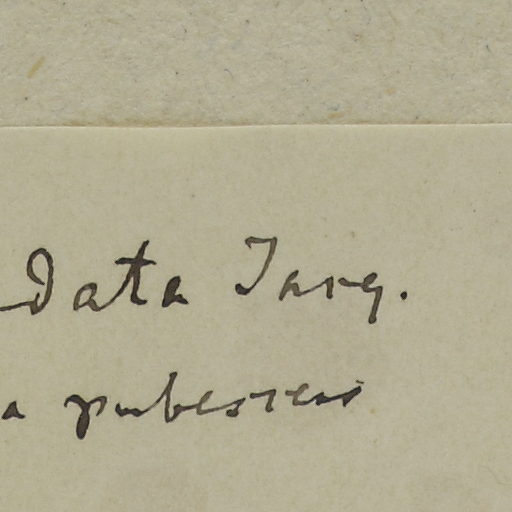 data Jacq.
a pubescens